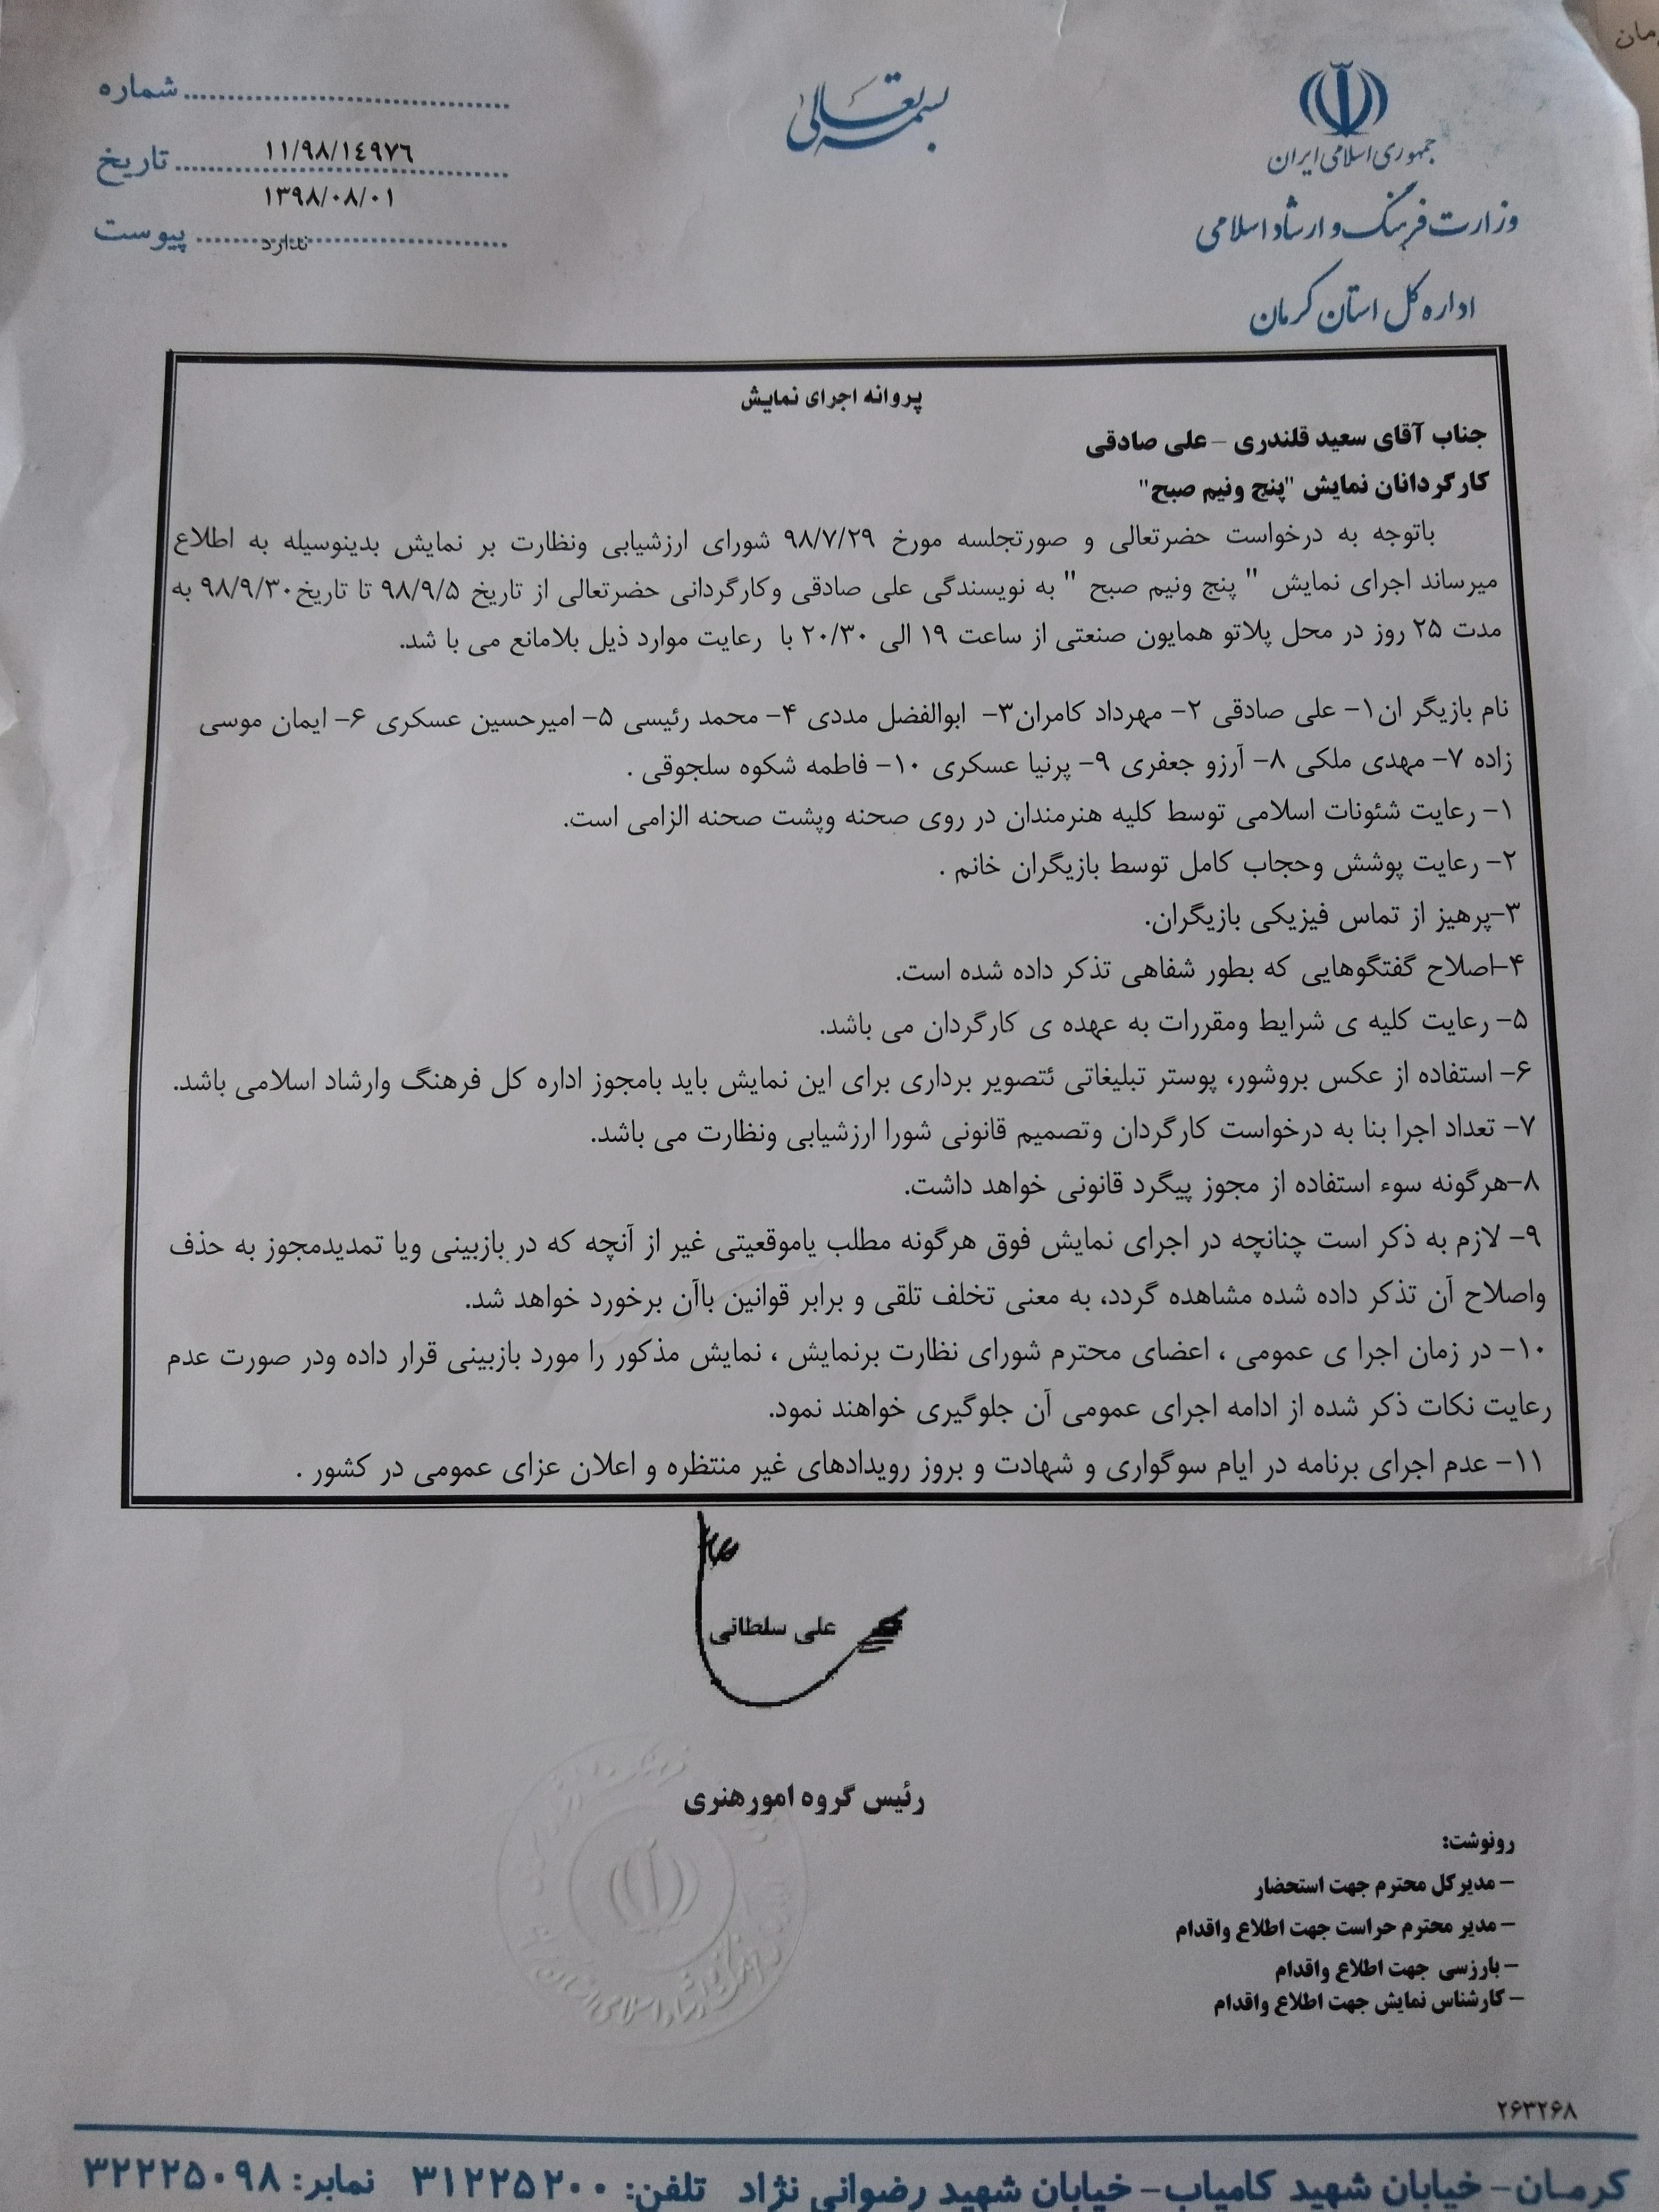 بسمه تعالی
جمهوری اسلامی ایران
وزارت فرهنگ و ارشاد اسلامی
اداره کل استان کرمان
شماره
۱۱/۹۸/۱٤۹۷٦
تاریخ
۱۳۹۸/۰۸/۰۱
پیوست ندارد
پروانه اجرای نمایش
جناب آقای سعید قلندری – علی صادقی
کارگردانان نمایش "پنج ونیم صبح"
باتوجه به درخواست حضرتعالی و صورتجلسه مورخ ۹۸/۷/۲۹ شورای ارزشیابی ونظارت بر نمایش بدینوسیله به اطلاع
میرساند اجرای نمایش " پنج ونیم صبح " به نویسندگی علی صادقی وکارگردانی حضرتعالی از تاریخ ۹۸/۹/۵ تا تاریخ۹۸/۹/۳۰ به
مدت ۲۵ روز در محل پلاتو همایون صنعتی از ساعت ۱۹ الی ۲۰/۳۰ با رعایت موارد ذیل بلامانع می با شد.
نام بازیگر ان۱- علی صادقی ۲- مهرداد کامران۳- ابوالفضل مددی ۴- محمد رئیسی ۵- امیرحسین عسکری ۶- ایمان موسی
زاده ۷- مهدی ملکی ۸- آرزو جعفری ۹- پرنیا عسکری ۱۰- فاطمه شکوه سلجوقی .
۱- رعایت شئونات اسلامی توسط کلیه هنرمندان در روی صحنه وپشت صحنه الزامی است.
۲- رعایت پوشش وحجاب کامل توسط بازیگران خانم .
۳-پرهیز از تماس فیزیکی بازیگران.
۴-اصلاح گفتگوهایی که بطور شفاهی تذکر داده شده است.
۵- رعایت کلیه ی شرایط ومقررات به عهده ی کارگردان می باشد.
۶- استفاده از عکس بروشور، پوستر تبلیغاتی ئتصویر برداری برای این نمایش باید بامجوز اداره کل فرهنگ وارشاد اسلامی باشد.
۷- تعداد اجرا بنا به درخواست کارگردان وتصمیم قانونی شورا ارزشیابی ونظارت می باشد.
۸-هرگونه سوء استفاده از مجوز پیگرد قانونی خواهد داشت.
۹- لازم به ذکر است چنانچه در اجرای نمایش فوق هرگونه مطلب یاموقعیتی غیر از آنچه که در بازبینی ویا تمدیدمجوز به حذف
واصلاح آن تذکر داده شده مشاهده گردد، به معنی تخلف تلقی و برابر قوانین باآن برخورد خواهد شد.
۱۰- در زمان اجرا ی عمومی ، اعضای محترم شورای نظارت برنمایش ، نمایش مذکور را مورد بازبینی قرار داده ودر صورت عدم
رعایت نکات ذکر شده از ادامه اجرای عمومی آن جلوگیری خواهند نمود.
۱۱- عدم اجرای برنامه در ایام سوگواری و شهادت و بروز رویدادهای غیر منتظره و اعلان عزای عمومی در کشور .
علی سلطانی
رئیس گروه امورهنری
رونوشت:
– مدیرکل محترم جهت استحضار
– مدیر محترم حراست جهت اطلاع واقدام
– بارزسی جهت اطلاع واقدام
– کارشناس نمایش جهت اطلاع واقدام
۲۶۳۲۶۸
کرمان- خیابان شهید کامیاب- خیابان شهید رضوانی نژاد تلفن: ۳۱۲۲۵۲۰۰ نمابر: ۳۲۲۲۵۰۹۸